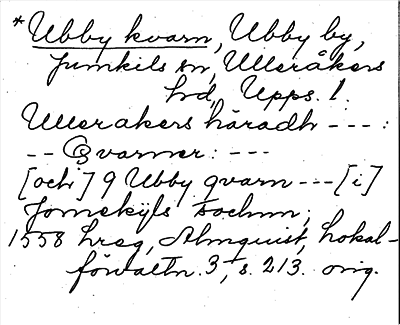 *Ubby kvarn, Ubby by,
Jumkils sn, Ulleråkers
hd, Upps. l.
Ullerakers häradh --- :
-- Qvarner: ---
[och] 9 Ubby qvarn --- [i]
Jomskijls Sochnn;
1558 hreg, Almquist, Lokal-
förvaltn. 3, s. 213. orig.